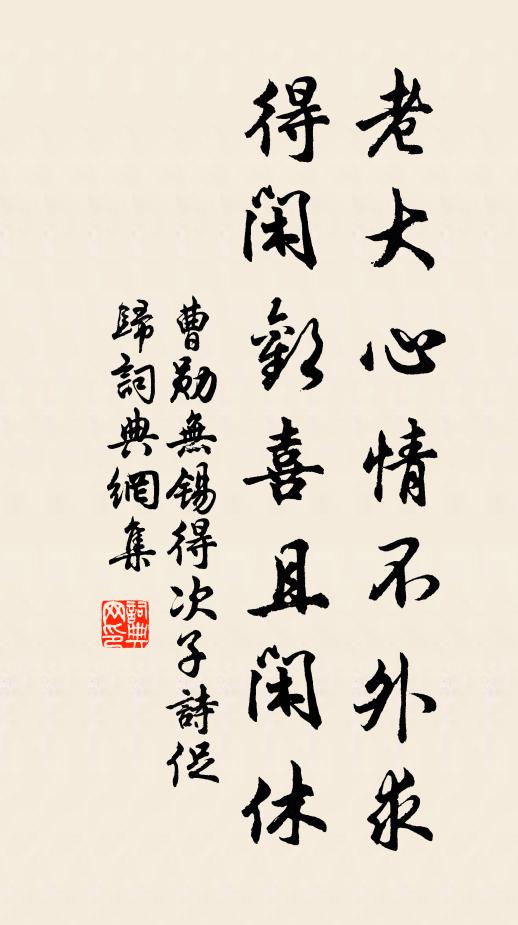 老大心情不外求
得閑歡喜且閑休
曹勛無錫得次子詩促
歸詞典網集
詞典网印